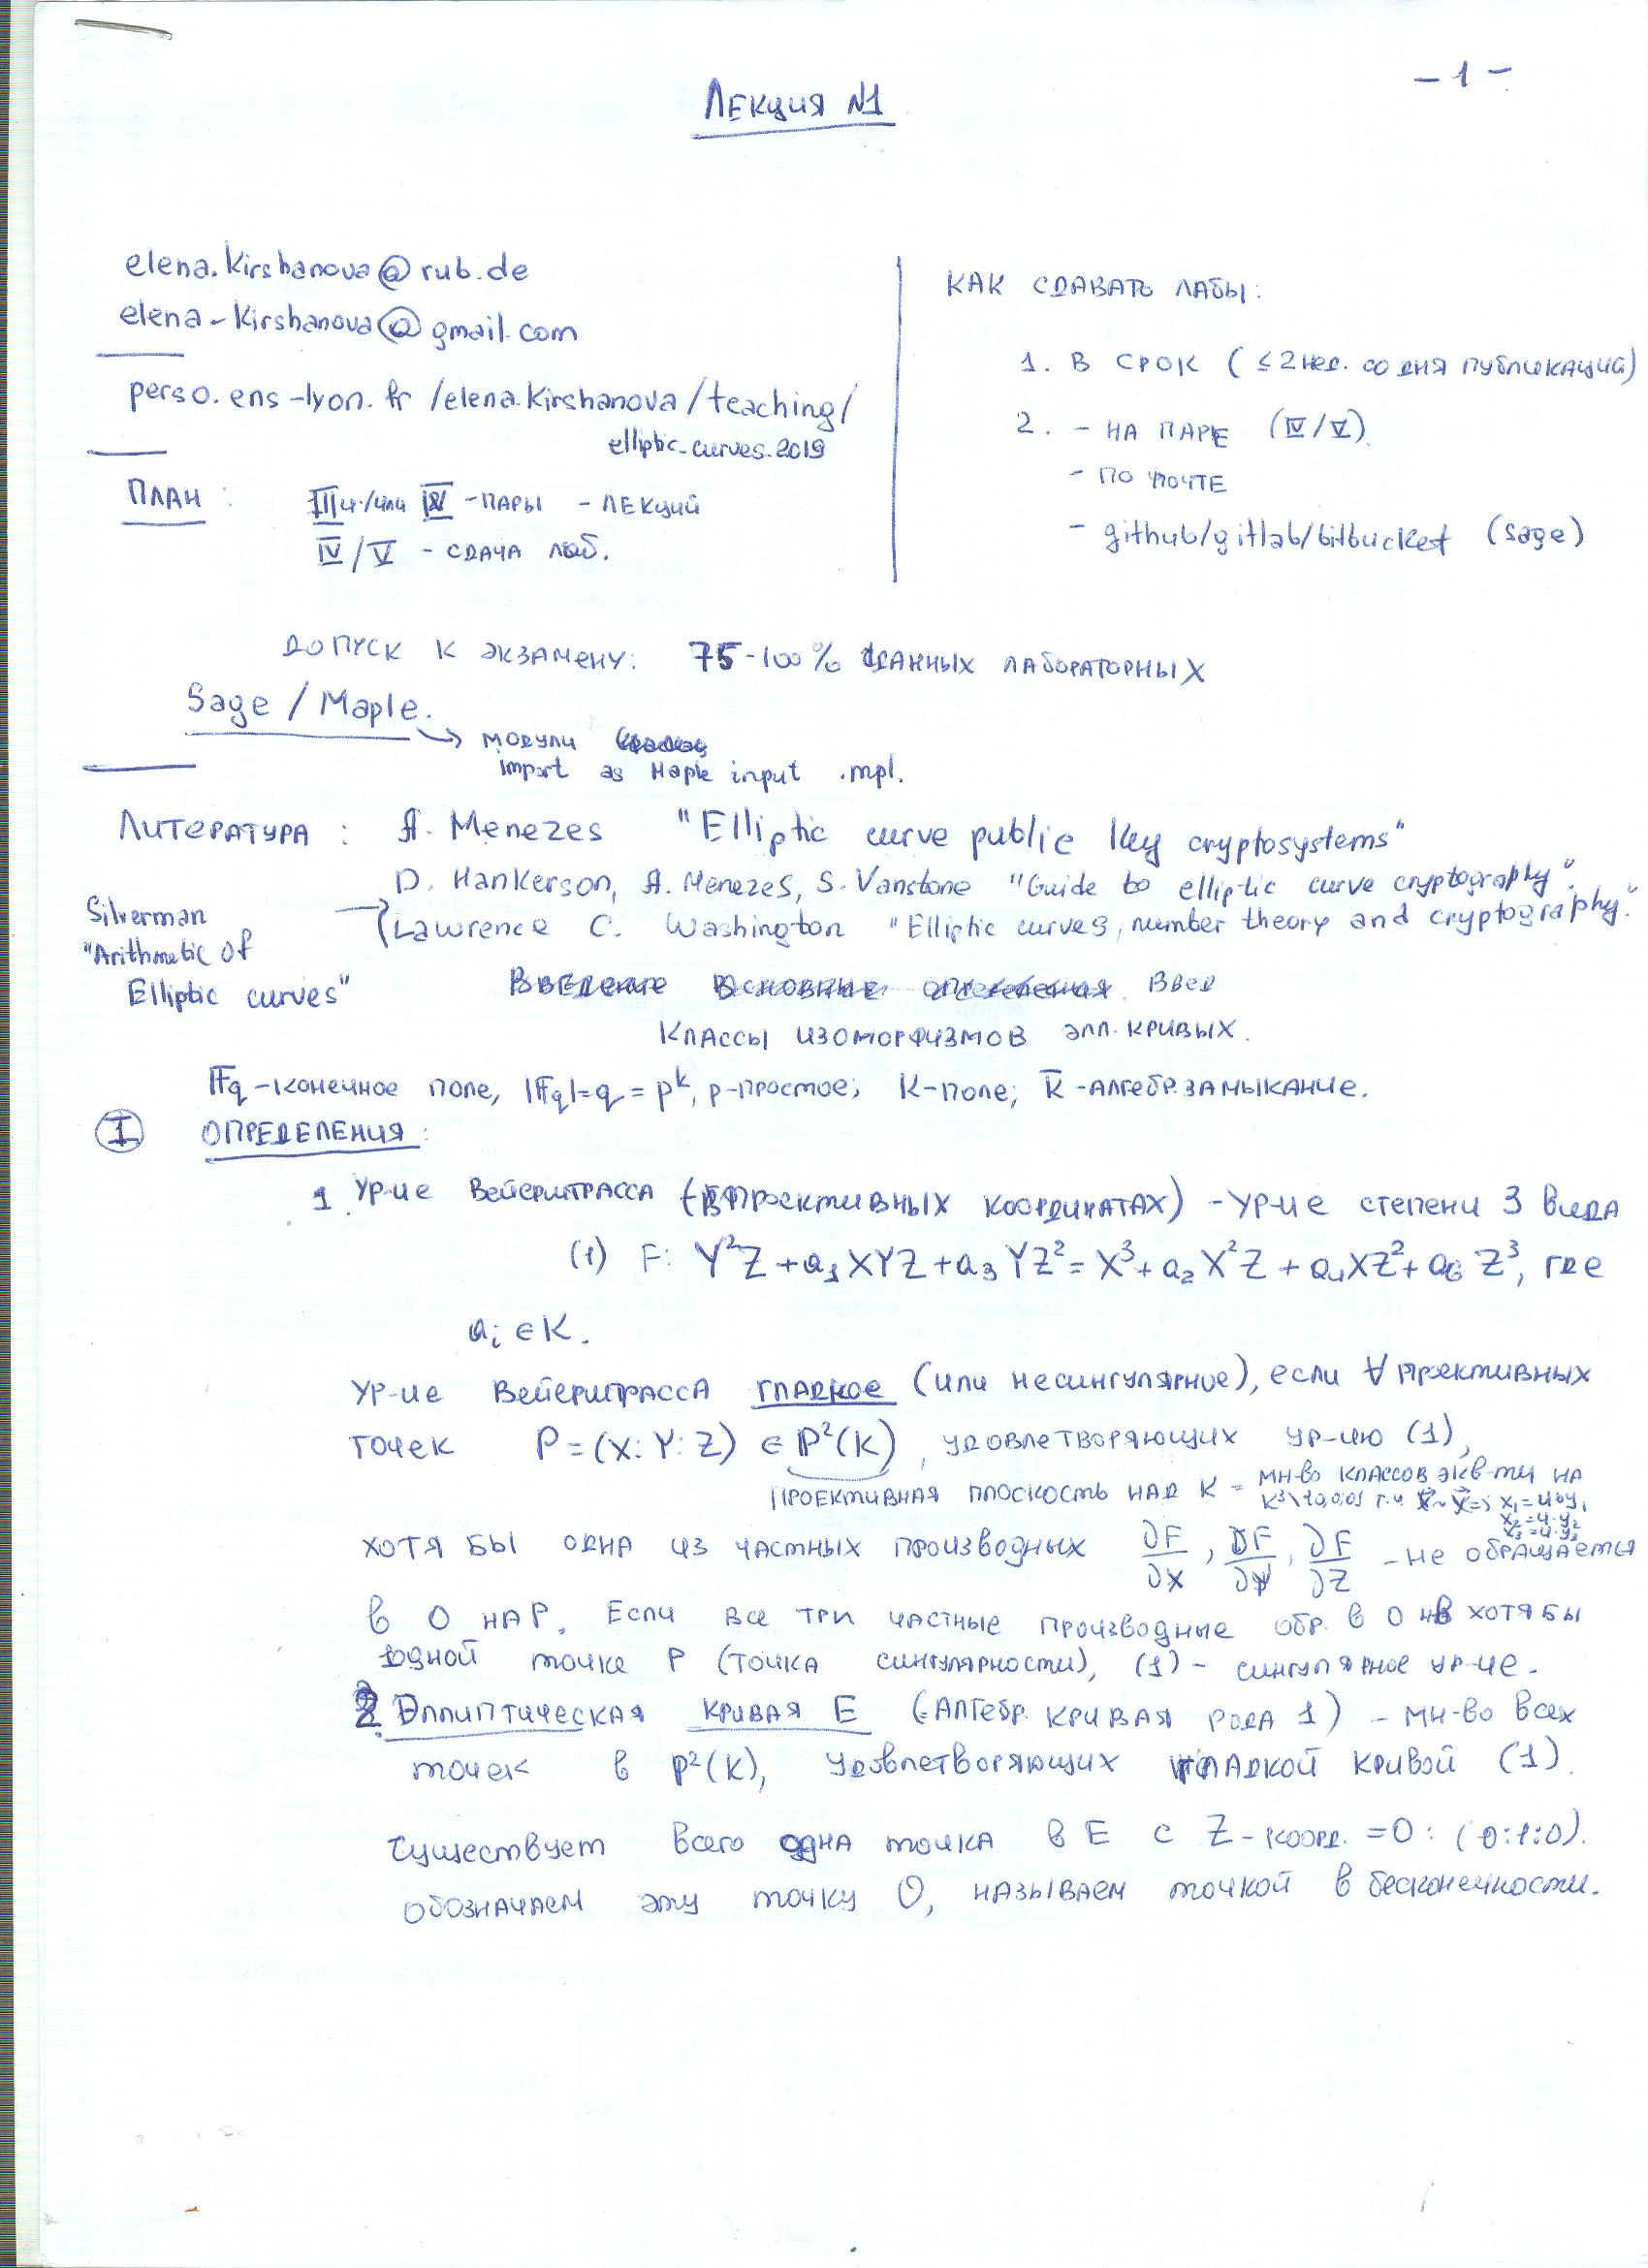 - 1 -
ЛЕКЦИЯ №1
elena.kirshanova@rub.de
elena-kirshanova@gmail.com
perso.ens-lyon.fr/elena.kirshanova/teaching/
elliptic_curves_2019
ПЛАН:
III и/или IV - ПАРЫ - ЛЕКЦИЙ
IV/V - СДАЧА ЛАБ.
КАК СДАВАТЬ ЛАБЫ:
1. В СРОК (≤ 2 нед. со дня публикации)
2. - НА ПАРЕ (IV/V).
- ПО ПОЧТЕ
- github/gitlab/bitbucket (sage)
ДОПУСК К ЭКЗАМЕНУ: 75-100% СДАННЫХ ЛАБОРАТОРНЫХ
Sage / Maple.
→ модули
import as Maple input .mpl.
ЛИТЕРАТУРА: A. Menezes "Elliptic curve public key cryptosystems"
D. Hankerson, A. Menezes, S. Vanstone "Guide to elliptic curve cryptography".
Lawrence C. Washington "Elliptic curves, number theory and cryptography."
Silverman
"Arithmetic of
Elliptic curves"
Введение Основные определения. Введ
Классы изоморфизмов элл. кривых.
𝔽q - конечное поле, |𝔽q|=q=p^k, p-простое; K-поле; K̄ - алгебр. замыкание.
I ОПРЕДЕЛЕНИЯ:
1. Ур-ие Вейерштрасса (в проективных координатах) - ур-ие степени 3 вида
(1) F: Y²Z + a₁XYZ + a₃YZ² = X³ + a₂X²Z + a₄XZ² + a₆Z³, где
aᵢ ∈ K.
Ур-ие Вейерштрасса гладкое (или несингулярное), если ∀ проективных
точек P = (X:Y:Z) ∈ P²(K), удовлетворяющих ур-ию (1),
проективная плоскость над K = мн-во классов экв-ти на
K³\{0,0,0} т.ч.
хотя бы одна из частных производных ∂F/∂X, ∂F/∂Y, ∂F/∂Z - не обращается
в 0 на P. Если все три частные производные обр. в 0 хотя бы
одной точке P (точка сингулярности), (1) - сингулярное ур-ие.
2. Эллиптическая кривая E (=алгебр. кривая рода 1) - мн-во всех
точек в P²(K), удовлетворяющих гладкой кривой (1).
Существует всего одна точка в E с Z-коорд. = 0: (0:1:0).
обозначаем эту точку O, называем точкой в бесконечности.